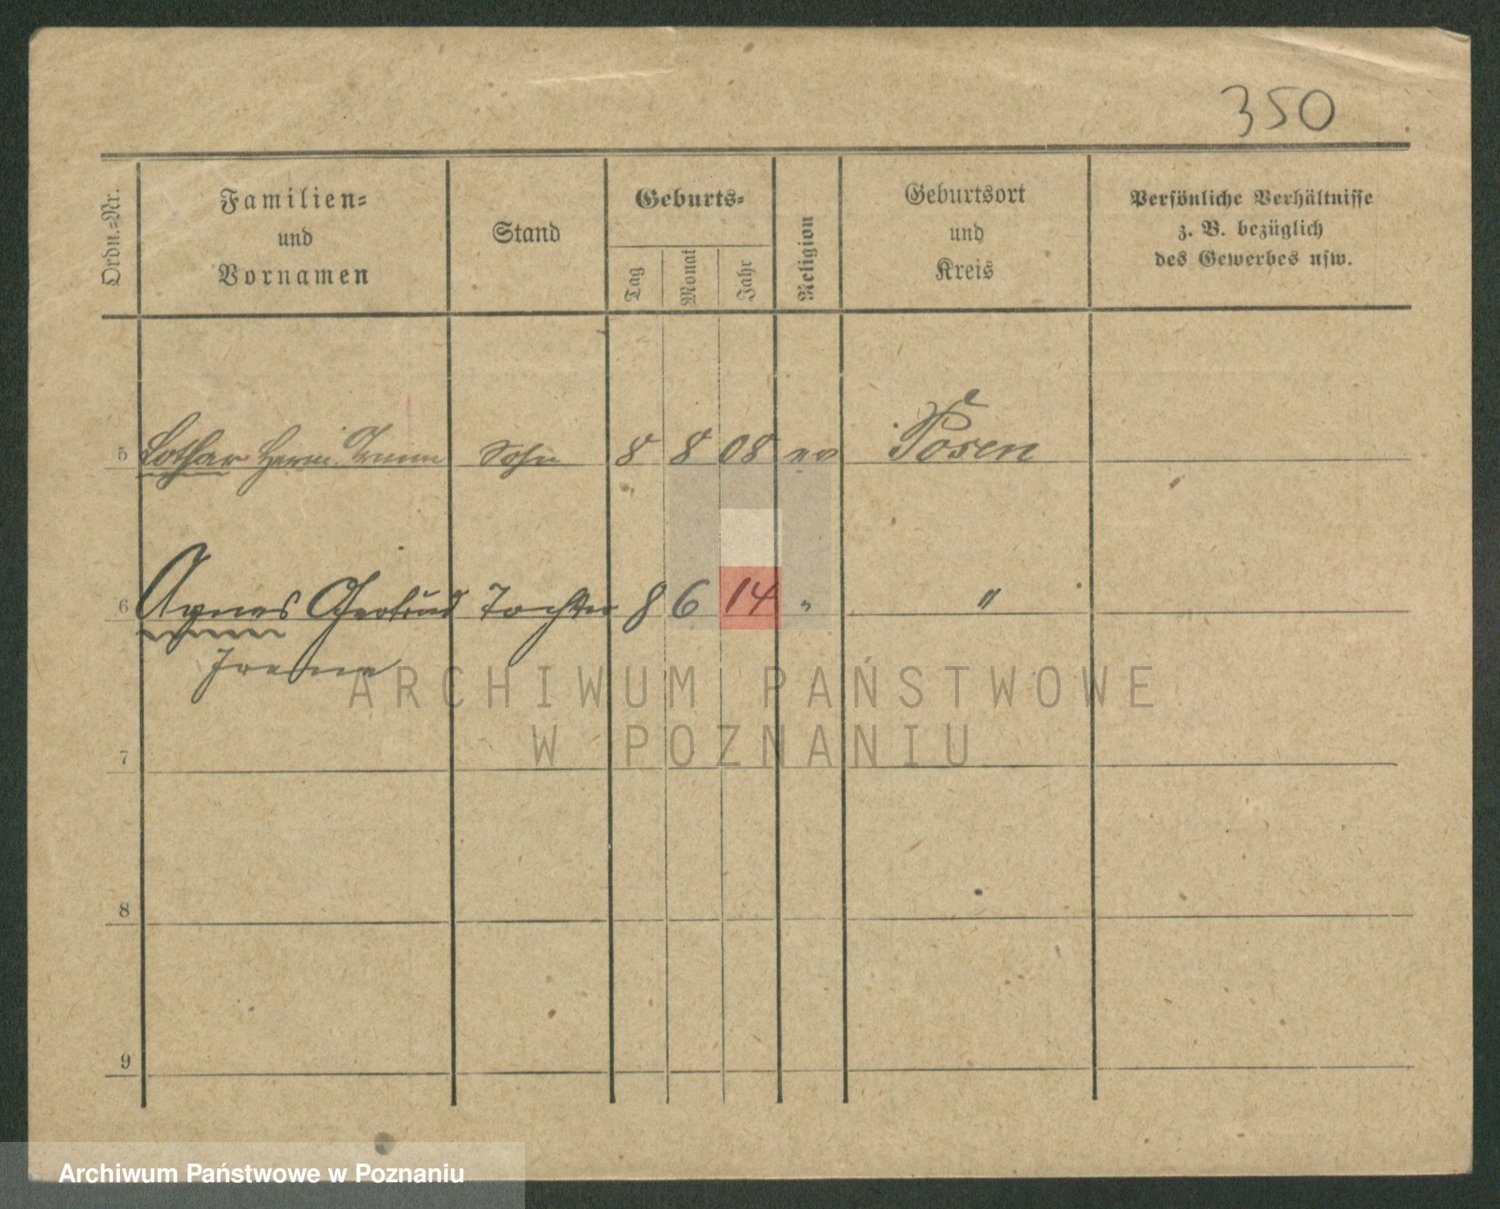 350
Ordn.-Nr.
Familien-
und
Vornamen
Stand
Geburts-
Tag
Monat
Jahr
Religion
Geburtsort
und
Kreis
Persönliche Verhältnisse
z. B. bezüglich
des Gewerbes usw.
5 Lothar Herm. Sohn 8 8 08 ev Posen
6 Agnes Gertrud Tochter 8 6 14 " "
Irene
ARCHIWUM PAŃSTWOWE
W POZNANIU
7
8
9
Archiwum Państwowe w Poznaniu